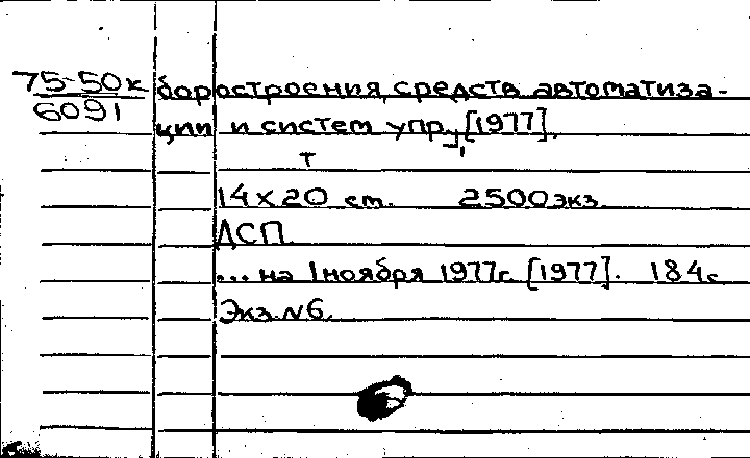 75-50к боростроения, средств автоматиза-
6091 ции и систем упр., [1977].
т
14 х 20 см. 2500 экз.
ДСП.
... на 1 ноября 1977г. [1977]. 184с
Экз. №6.